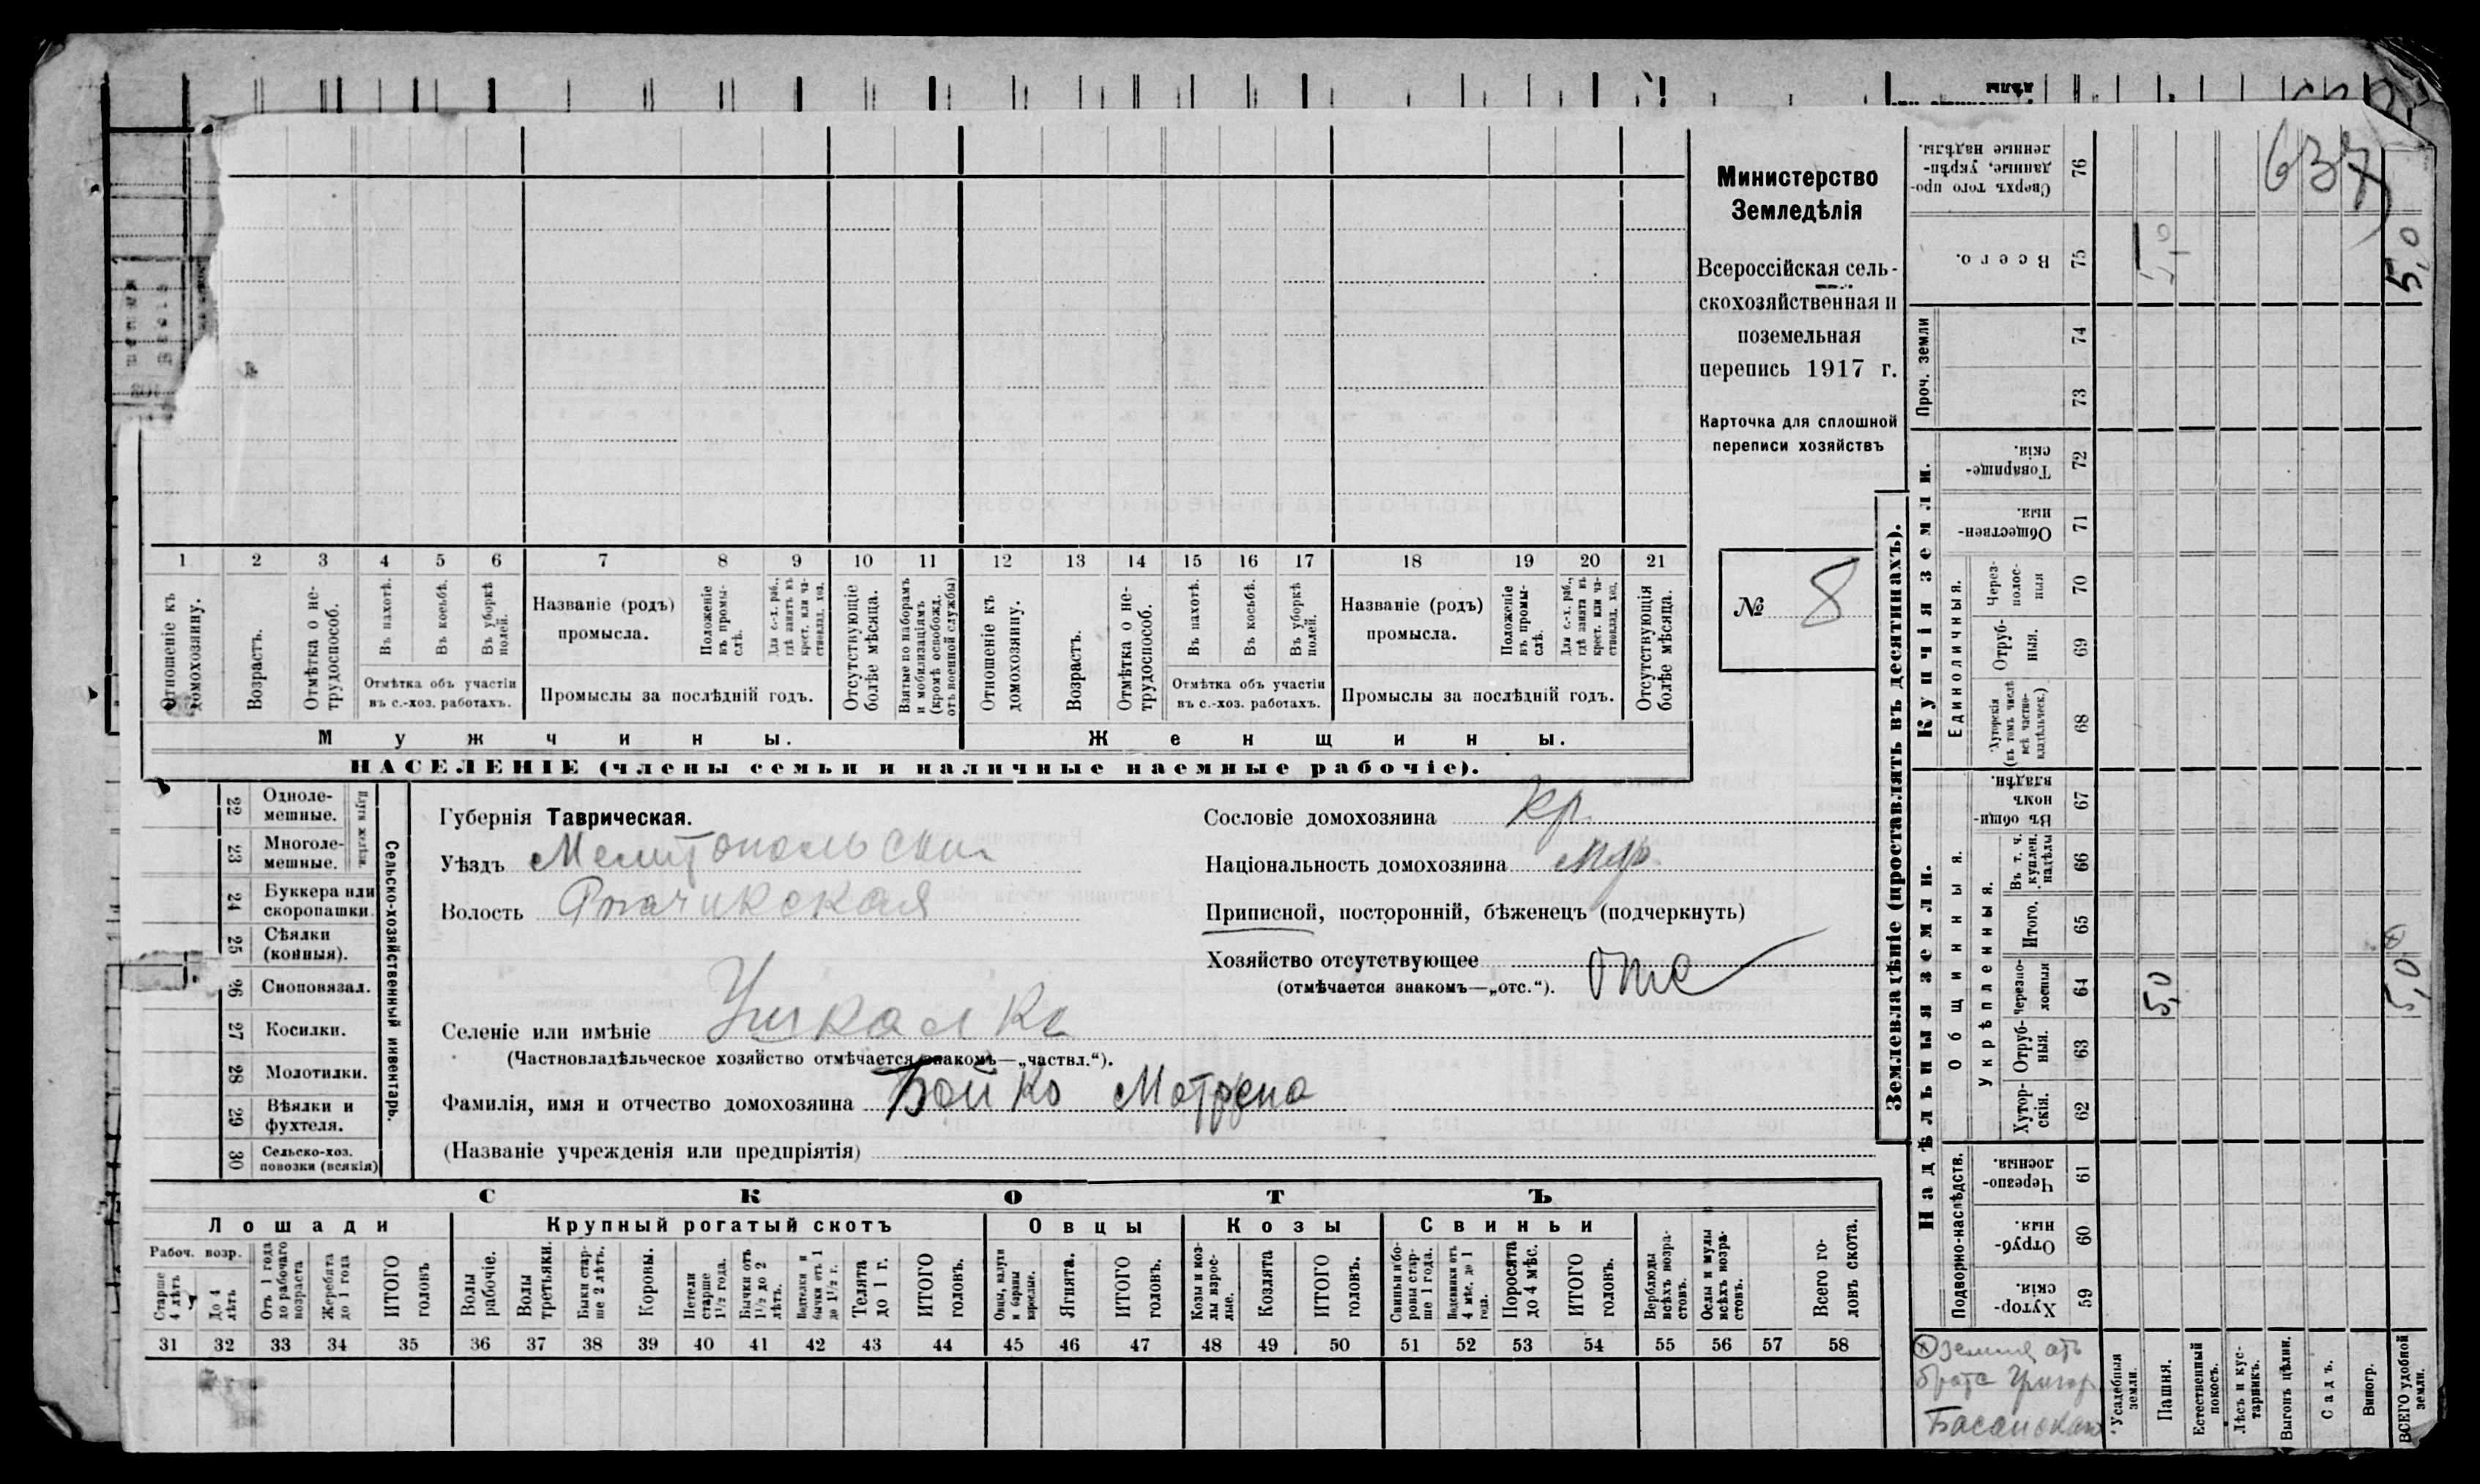 Министерство
Земледѣлія
Всероссійская сель-
скохозяйственная и
поземельная
перепись 1917 г.
Карточка для сплошной
переписи хозяйствъ
№ 8
637
1 2 3 4 5 6 7 8 9 10 11 12 13 14 15 16 17 18 19 20 21
Отношеніе къ домохозяину.
Возрастъ.
Отмѣтка о не-трудоспособ.
Въ пахотѣ.
Въ косьбѣ.
Въ уборкѣ полей.
Отмѣтка объ участіи
въ с.-хоз. работахъ.
Названіе (родъ)
промысла.
Положеніе въ промы-слѣ.
Для с.-х. раб., гдѣ занятъ въ крест. или ча-стновлад. хоз.
Промыслы за послѣдній годъ.
Отсутствующіе болѣе мѣсяца.
Взятые по наборамъ и мобилизаціямъ (кромѣ освобожд. отъ военной службы)
Отношеніе къ домохозяину.
Возрастъ.
Отмѣтка о не-трудоспособ.
Въ пахотѣ.
Въ косьбѣ.
Въ уборкѣ полей.
Отмѣтка объ участіи
въ с.-хоз. работахъ.
Названіе (родъ)
промысла.
Положеніе въ промы-слѣ.
Для с.-х. раб., гдѣ занята въ крест. или ча-стновлад. хоз.
Промыслы за послѣдній годъ.
Отсутствующія болѣе мѣсяца.
Мужчины.
Женщины.
НАСЕЛЕНІЕ (члены семьи и наличные наемные рабочіе).
22 Одноле-мешные.
23 Многоле-мешные.
24 Буккера или скоропашки.
25 Сѣялки (конныя).
26 Сноповязал.
27 Косилки.
28 Молотилки.
29 Вѣялки и фухтеля.
30 Сельско-хоз. повозки (всякія)
Сельско-хозяйственный инвентарь.
Губернія Таврическая.
Уѣздъ Мелитопольскій
Волость Рогачикская
Селеніе или имѣніе Ушкалка
(Частновладѣльческое хозяйство отмѣчается знакомъ—„частвл.“).
Фамилія, имя и отчество домохозяина Бойко Мотрена
(Названіе учрежденія или предпріятія)
Сословіе домохозяина кр.
Національность домохозяина мр.
Приписной, посторонній, бѣженецъ (подчеркнуть)
Хозяйство отсутствующее отс
(отмѣчается знакомъ—„отс.“).
СКОТЪ
Лошади
Крупный рогатый скотъ
Овцы
Козы
Свиньи
Рабоч. возр.
Старше 4 лѣтъ
До 4 лѣтъ
Отъ 1 года до рабочаго возраста
Жеребята до 1 года
ИТОГО головъ
Волы рабочіе.
Волы третьяки.
Быки стар-ше 2 лѣтъ.
Коровы.
Нетели старше 1½ года.
Бычки отъ 1½ до 2 лѣтъ.
Телята до 1 г.
ИТОГО головъ.
Ягнята.
ИТОГО головъ.
Козы и коз-лы взрос-лые.
Козлята
ИТОГО головъ.
Свиньи и бо-ровы стар-ше 1 года.
Подсвинки отъ 4 мѣс. до 1 года.
Поросята до 4 мѣс.
ИТОГО головъ.
Верблюды всѣхъ возра-стовъ.
Ослы и мулы всѣхъ возра-стовъ.
Всего го-ловъ скота.
31 32 33 34 35 36 37 38 39 40 41 42 43 44 45 46 47 48 49 50 51 52 53 54 55 56 57 58
Землевладѣніе (проставлять въ десятинахъ).
Купчія земли.
Надѣльныя земли.
Сверхъ того про-данные, укрѣп-ленные надѣлы. 76
Всего. 75 5,0 5,0
Проч. земли
74
73
Товарище-скія. 72
Обществен-ныя. 71
Единоличныя.
Через-полос-ныя 70
Отруб-ныя. 69
Хуторскія (въ томъ числѣ всѣ частно-владѣльческ.) 68
Общинныя.
Въ общин-номъ владѣн. 67
Укрѣпленныя.
Въ т. ч. куплен. надѣлы 66
Итого. 65
Черезпо-лосныя 64 5,0 5,0
Отруб-ныя. 63
Хутор-скія. 62
Подворно-наслѣдств.
Черезпо-лосныя. 61
Отруб-ныя. 60
Хутор-скія. 59
земля отъ
брата Григор.
Усадебныя земли.
Пашня.
Естественный покосъ.
Лѣсъ и кус-тарникъ.
Выгонъ цѣлин.
Садъ.
Виногр.
ВСЕГО удобной земли.